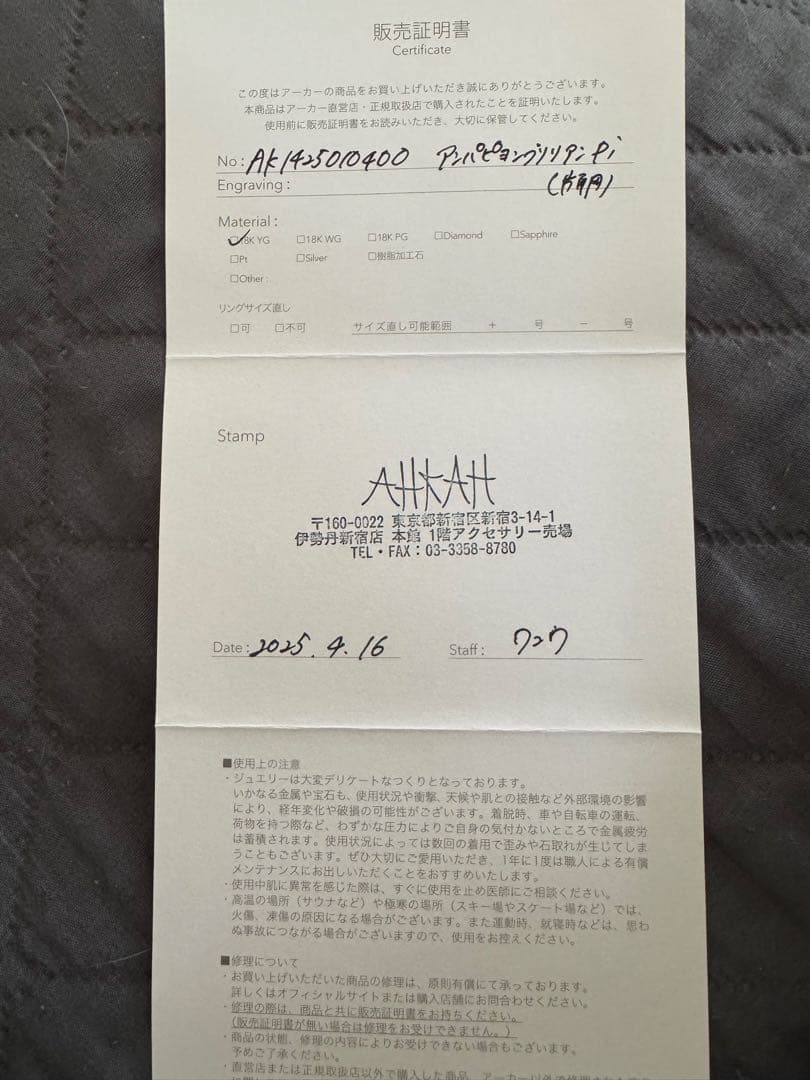 販売証明書
Certificate
この度はアーカーの商品をお買い上げいただき誠にありがとうございます。
本商品はアーカー直営店・正規取扱店で購入されたことを証明いたします。
使用前に販売証明書をお読みいただき、大切に保管してください。
No: AK1425010400 アンパピヨンブリリアンPi
Engraving: (片耳用)
Material:
☑18K YG □18K WG □18K PG □Diamond □Sapphire
□Pt □Silver □樹脂加工石
□Other:
リングサイズ直し
□可 □不可 サイズ直し可能範囲 + 号 − 号
Stamp
AHKAH
〒160-0022 東京都新宿区新宿3-14-1
伊勢丹新宿店 本館 1階アクセサリー売場
TEL・FAX:03-3358-8780
Date: 2025.4.16 Staff:
■使用上の注意
・ジュエリーは大変デリケートなつくりとなっております。
いかなる金属や宝石も、使用状況や衝撃、天候や肌との接触など外部環境の影響
により、経年変化や破損の可能性がございます。着脱時、車や自転車の運転、
荷物を持つ際など、わずかな圧力によりご自身の気付かないところで金属疲労
は蓄積されます。使用状況によっては数回の着用で歪みや石取れが生じてしま
うこともございます。ぜひ大切にご愛用いただき、1年に1度は職人による有償
メンテナンスにお出しいただくことをおすすめいたします。
・使用中肌に異常を感じた際は、すぐに使用を止め医師にご相談ください。
・高温の場所（サウナなど）や極寒の場所（スキー場やスケート場など）では、
火傷、凍傷の原因になる場合がございます。また運動時、就寝時などは、思わ
ぬ事故につながる場合がございますので、使用をお控えください。
■修理について
・お買い上げいただいた商品の修理は、原則有償にて承っております。
詳しくはオフィシャルサイトまたは購入店舗にお問合わせください。
・修理の際は、商品と共に販売証明書をお持ちください。
（販売証明書が無い場合は修理をお受けできません。）
・商品の状態、修理の内容によりお受けできない場合もございます。
予めご了承ください。
・直営店または正規取扱店以外で購入した商品、アーカー以外で修理された